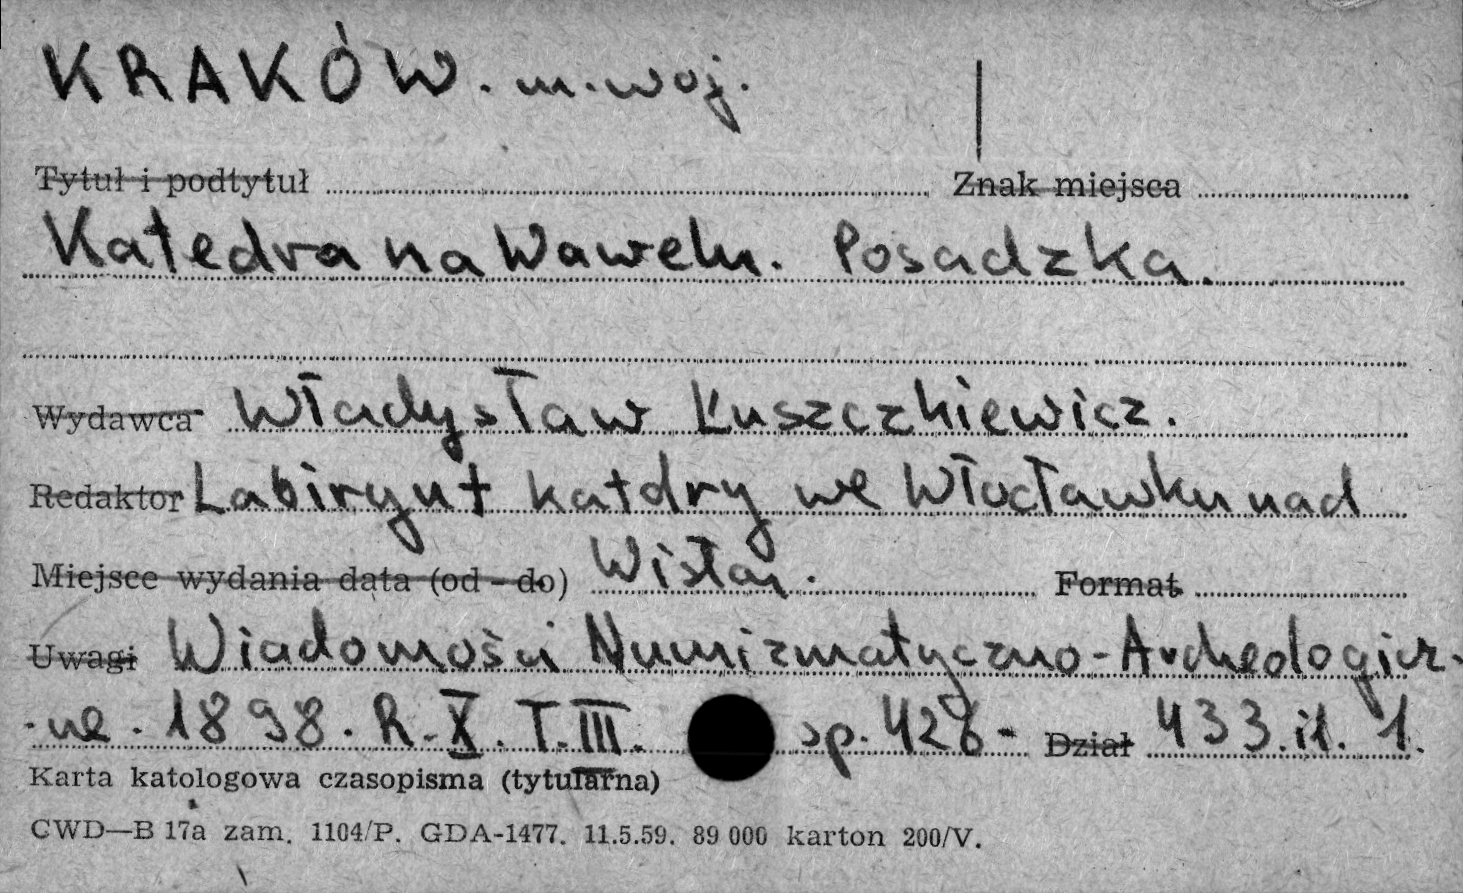 KRAKÓW. m. woj.
Tytuł i podtytuł Znak miejsca
Katedra na Wawelu. Posadzka.
Wydawca Władysław Łuszczkiewicz.
Redaktor Labirynt katdry we Włocławku nad
Miejsce wydania data (od - do) Wisłą. Format
Uwagi Wiadomości Numizmatyczno-Archeologicz-
-ne. 1898. R. X. T. III. sp. 428- Dział 433. il. 1.
Karta katologowa czasopisma (tytularna)
CWD—B 17a zam. 1104/P. GDA-1477. 11.5.59. 89 000 karton 200/V.